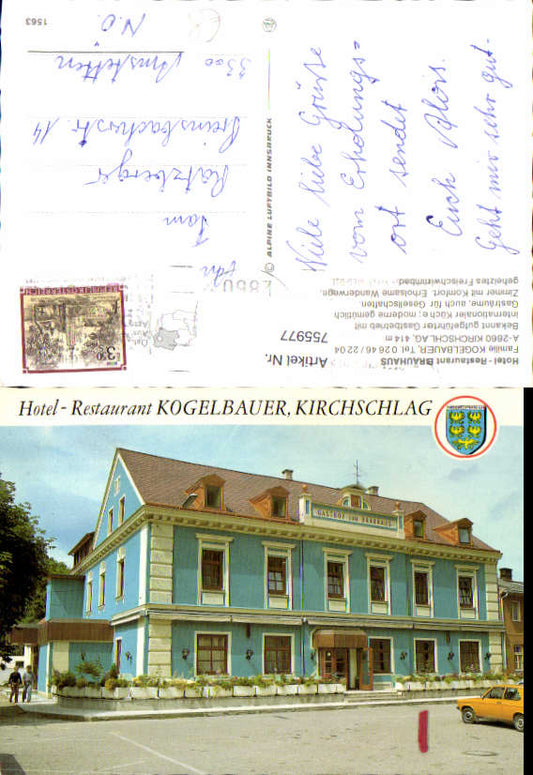 1563
N.Ö.
3300 Amstetten
Preinsbacherstr. 14
Ratzberger
Fam
An
Viele liebe Grüße
vom Erholungs=
ort sendet
Euch Alois.
Geht mir sehr gut-
© ALPINE LUFTBILD INNSBRUCK
2860
REPUBLIK ÖSTERREICH
Hotel - Restaurant BRAUHAUS
Familie KOGELBAUER, Tel. 0 26 46 / 22 04
A-2860 KIRCHSCHLAG, 414 m
Bekannt gutgeführter Gastbetrieb mit
internationaler Küche; moderne gemütliche
Gasträume, auch für Gesellschaften
Zimmer mit Komfort. Erholsame Wanderwege,
geheiztes Freischwimmbad.
Artikel Nr. 755977
Hotel - Restaurant KOGELBAUER, KIRCHSCHLAG
GASTHOF ZUM BRAUHAUS